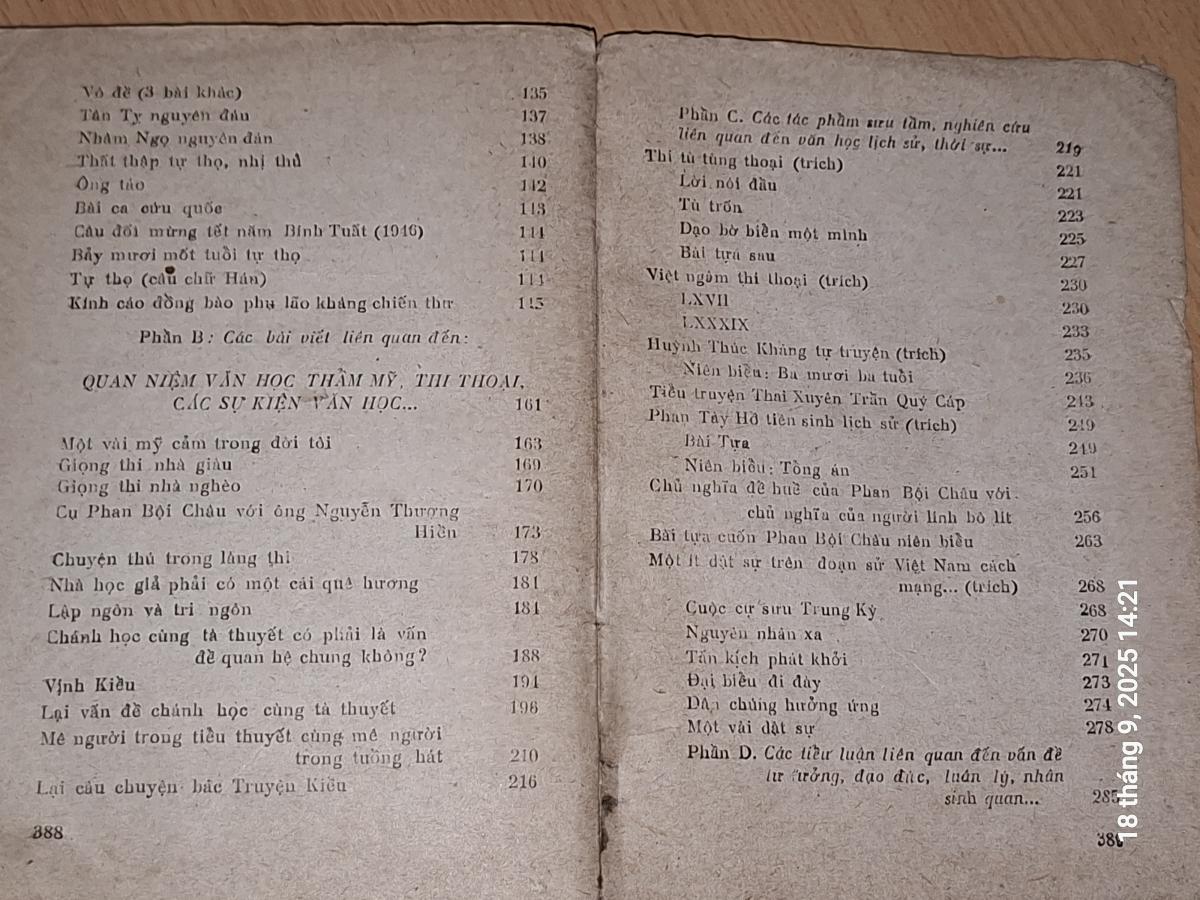 Vô đề (3 bài khác) 135
Tân Tỵ nguyên đán 137
Nhâm Ngọ nguyên đán 138
Thất thập tự thọ, nhị thủ 140
Ông táo 142
Bài ca cứu quốc 143
Câu đối mừng tết năm Bính Tuất (1946) 144
Bảy mươi mốt tuổi tự thọ 144
Tự thọ (câu chữ Hán) 144
Kính cáo đồng bào phụ lão kháng chiến thư 145
Phần B: Các bài viết liên quan đến:
QUAN NIỆM VĂN HỌC THẨM MỸ, THI THOẠI,
CÁC SỰ KIỆN VĂN HỌC... 161
Một vài mỹ cảm trong đời tôi 163
Giọng thi nhà giàu 169
Giọng thi nhà nghèo 170
Cụ Phan Bội Châu với ông Nguyễn Thượng
Hiền 173
Chuyện thú trong làng thi 178
Nhà học giả phải có một cái quê hương 181
Lập ngôn và tri ngôn 184
Chánh học cùng tà thuyết có phải là vấn
đề quan hệ chung không? 188
Vịnh Kiều 194
Lại vấn đề chánh học cùng tà thuyết 196
Mê người trong tiểu thuyết cùng mê người
trong tuồng hát 210
Lại câu chuyện bác Truyện Kiều 216
388
Phần C. Các tác phẩm sưu tầm, nghiên cứu
liên quan đến văn học lịch sử, thời sự... 219
Thi tù tùng thoại (trích) 221
Lời nói đầu 221
Tù trốn 223
Dạo bờ biển một mình 225
Bài tựa sau 227
Việt ngâm thi thoại (trích) 230
LXVII 230
LXXXIX 233
Huỳnh Thúc Kháng tự truyện (trích) 235
Niên biểu: Ba mươi ba tuổi 236
Tiểu truyện Thai Xuyên Trần Quý Cáp 243
Phan Tây Hồ tiên sinh lịch sử (trích) 249
Bài Tựa 249
Niên biểu: Tổng án 251
Chủ nghĩa đề huề của Phan Bội Châu với
chủ nghĩa của người lính bô lít 256
Bài tựa cuốn Phan Bội Châu niên biểu 263
Một ít dật sự trên đoạn sử Việt Nam cách
mạng... (trích) 268
Cuộc cự sưu Trung Kỳ 268
Nguyên nhân xa 270
Tấn kịch phát khởi 271
Đại biểu đi đày 273
Dân chúng hưởng ứng 274
Một vài dật sự 278
Phần D. Các tiểu luận liên quan đến vấn đề
tư tưởng, đạo đức, luân lý, nhân
sinh quan... 285
389
18 tháng 9, 2025 14:21